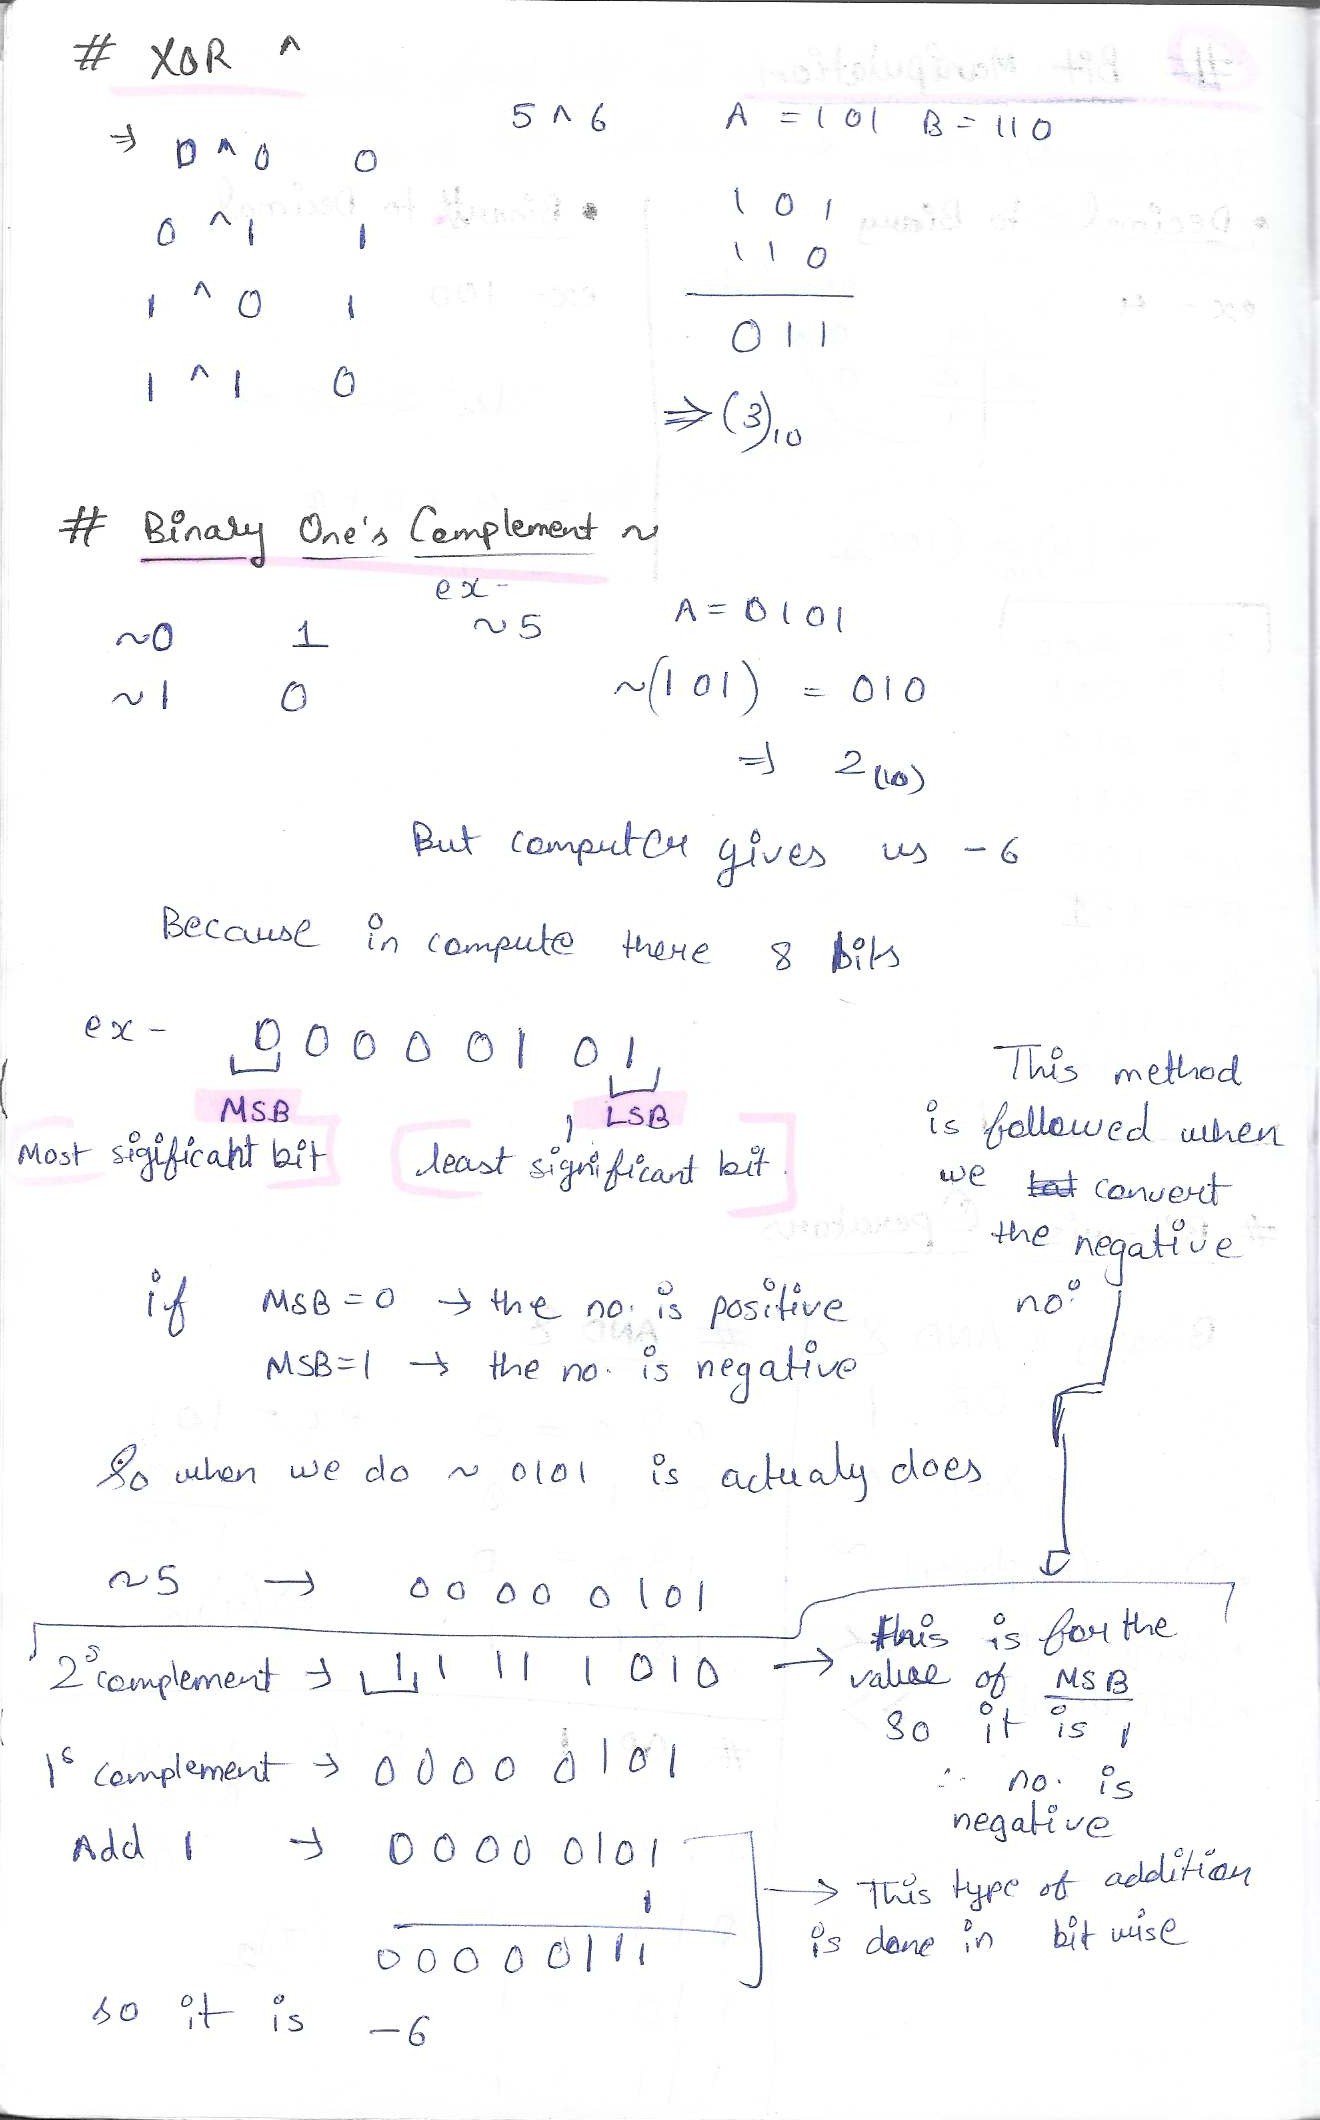 # XOR ^
5 ^ 6 A = 101 B = 110
⇒ 0 ^ 0 0
0 ^ 1 1
1 ^ 0 1
1 ^ 1 0
1 0 1
1 1 0
0 1 1
⇒ (3)10
# Binary One's Complement ~
ex -
~0 1
~1 0
~5
A = 0101
~(101) = 010
⇒ 2(10)
But computer gives us -6
Because in compute there 8 bits
ex - 0 0 0 0 0 1 0 1
MSB LSB
Most sigificant bit , least significant bit.
This method
is followed when
we convert
the negative
no:
if MSB = 0 → the no. is positive
MSB = 1 → the no. is negative
So when we do ~ 0101 is actualy does
~5 → 0 0 0 0 0 1 0 1
2s complement → 1 1 1 1 1 0 1 0 → this is for the
value of MSB
so it is 1
∴ no. is
negative
1s complement → 0 0 0 0 0 1 0 1
Add 1 → 0 0 0 0 0 1 0 1
1
0 0 0 0 0 1 1 1
→ This type of addition
is done in bit wise
so it is -6